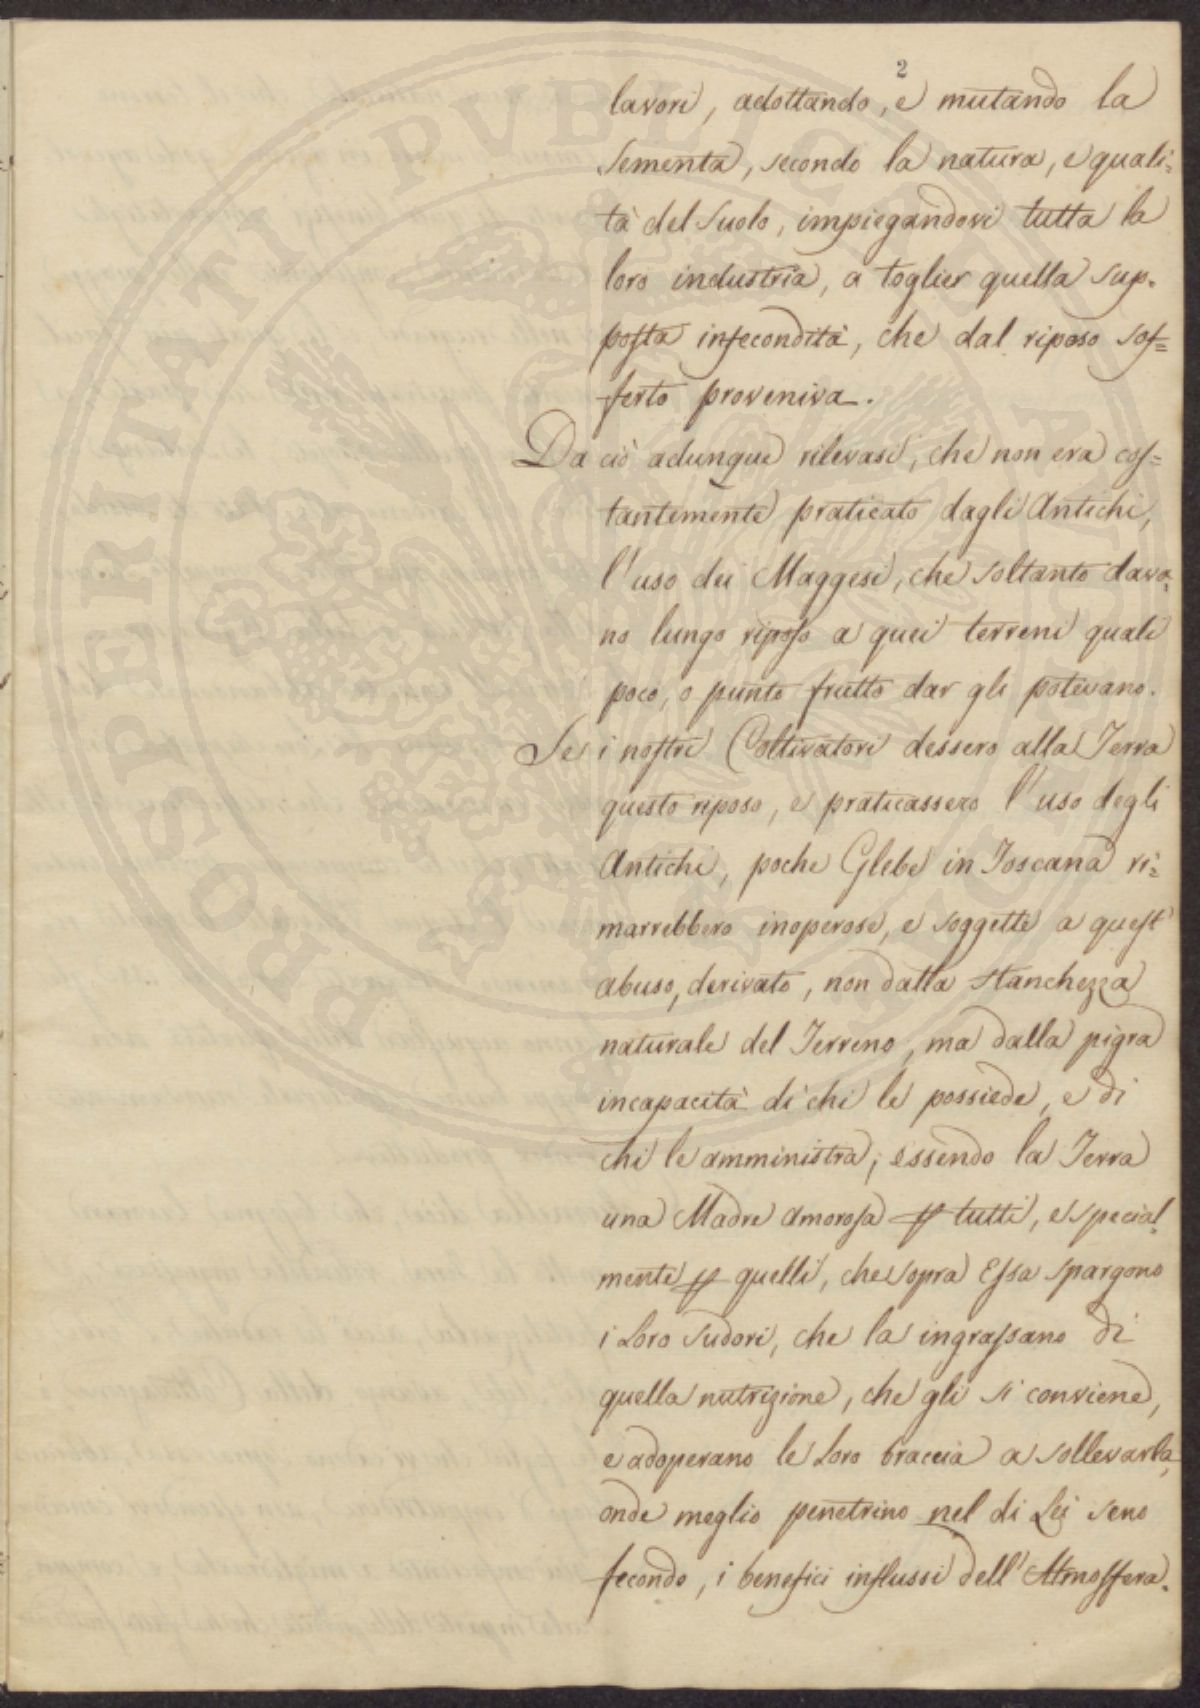 2
lavori, adottando, e mutando la
Sementa, secondo la natura, e quali=
tà del Suolo, impiegandovi tutta la
loro industria, a toglier quella sup-
posta infecondità, che dal riposo sof=
ferto proveniva.
Da ciò adunque rilevasi, che non era cos=
tantemente praticato dagli Antichi,
l'uso dei Maggesi, che soltanto dava-
no lungo riposo a quei terreni quali
poco, o punto frutto dar gli potevano.
Se i nostri Coltivatori dessero alla Terra
questo riposo, e praticassero l'uso degli
Antichi, poche Glebe in Toscana ri=
marrebbero inoperose, e soggette a quest'
abuso, derivato, non dalla stanchezza
naturale del Terreno, ma dalla pigra
incapacità di chi le possiede, e di
chi le amministra; essendo la Terra
una Madre amorosa p tutti, e special-
mente p quelli, che sopra Essa spargono
i Loro Sudori, che la ingrassano di
quella nutrizione, che gli si conviene,
e adoperano le Loro braccia a sollevarla,
onde meglio penetrino nel di Lei seno
fecondo, i benefici influssi dell'Atmosfera.
PROSPERITATI PVBLICAE AVGENDAE